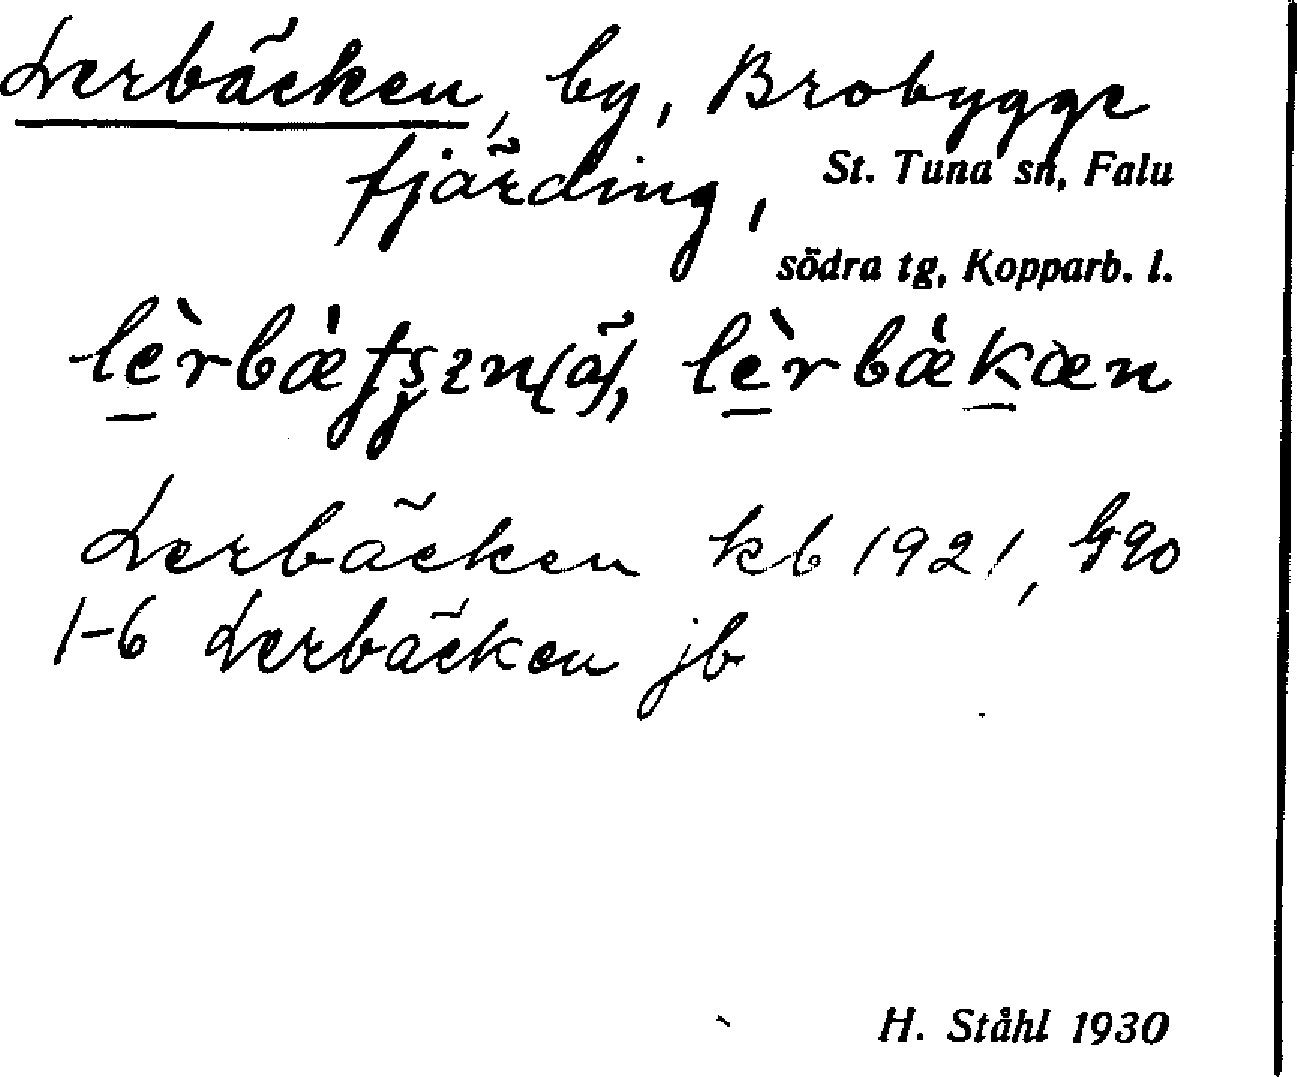 Lerbäcken, by, Brobygge
fjärding,
St. Tuna sn, Falu
södra tg, Kopparb. l.
Lerbäcken kb 1921, Geo
1-6 Lerbäcken jb
H. Ståhl 1930